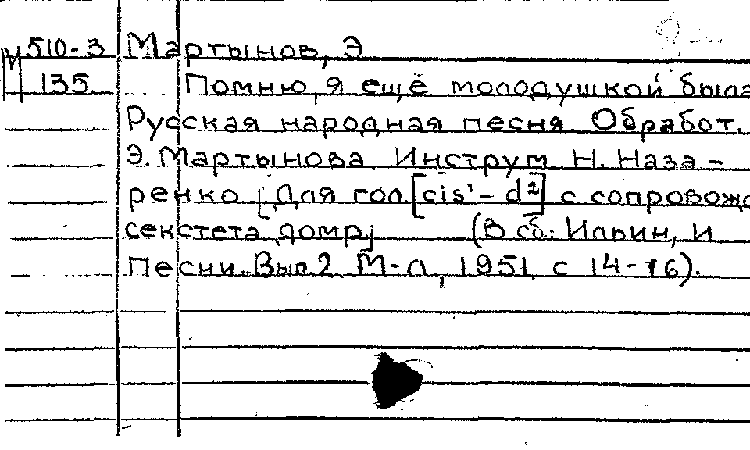 М510-3 Мартынов, Э
135 Помню я ещё молодушкой была
Русская народная песня Обработ.
Э. Мартынова Инструм Н. Наза-
ренко [Для гол [cis¹- d²] с сопровожд
секстета домр] (В сб: Ильин, И
Песни. Вып 2 М-Л, 1951, с 14-16).